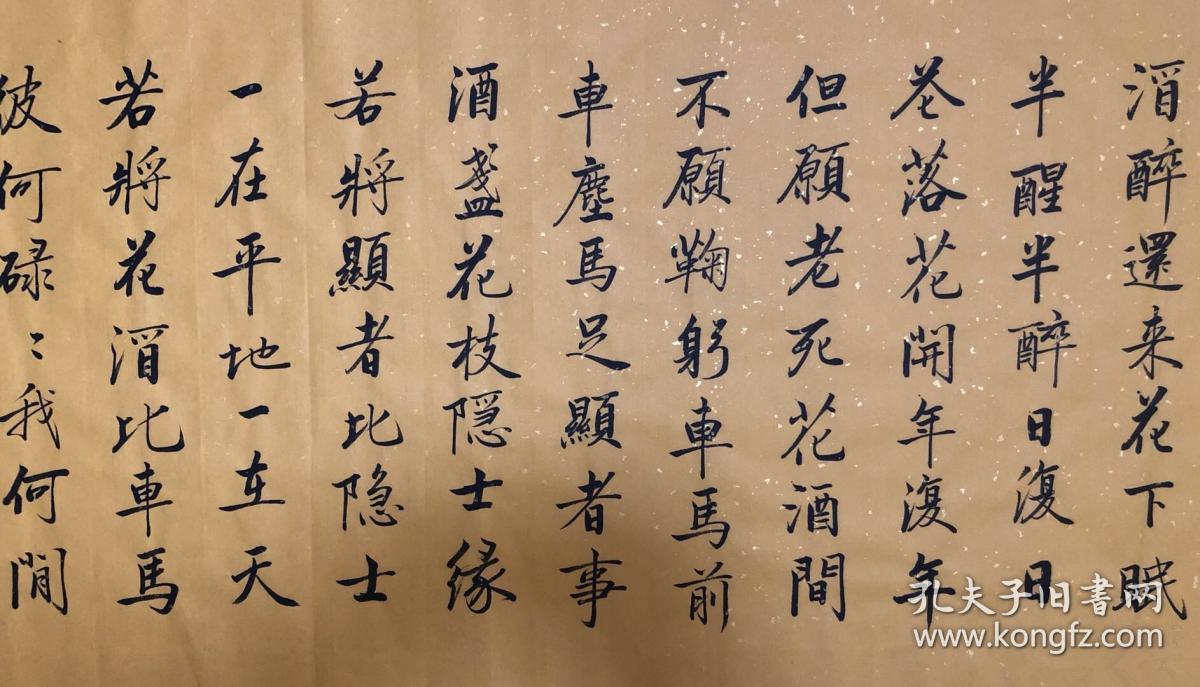 酒醉還来花下眠
半醒半醉日復日
花落花開年復年
但願老死花酒間
不願鞠躬車馬前
車塵馬足顯者事
酒盞花枝隐士緣
若將顯者比隐士
一在平地一在天
若將花酒比車馬
彼何碌々我何閒
孔夫子旧书网
www.kongfz.com